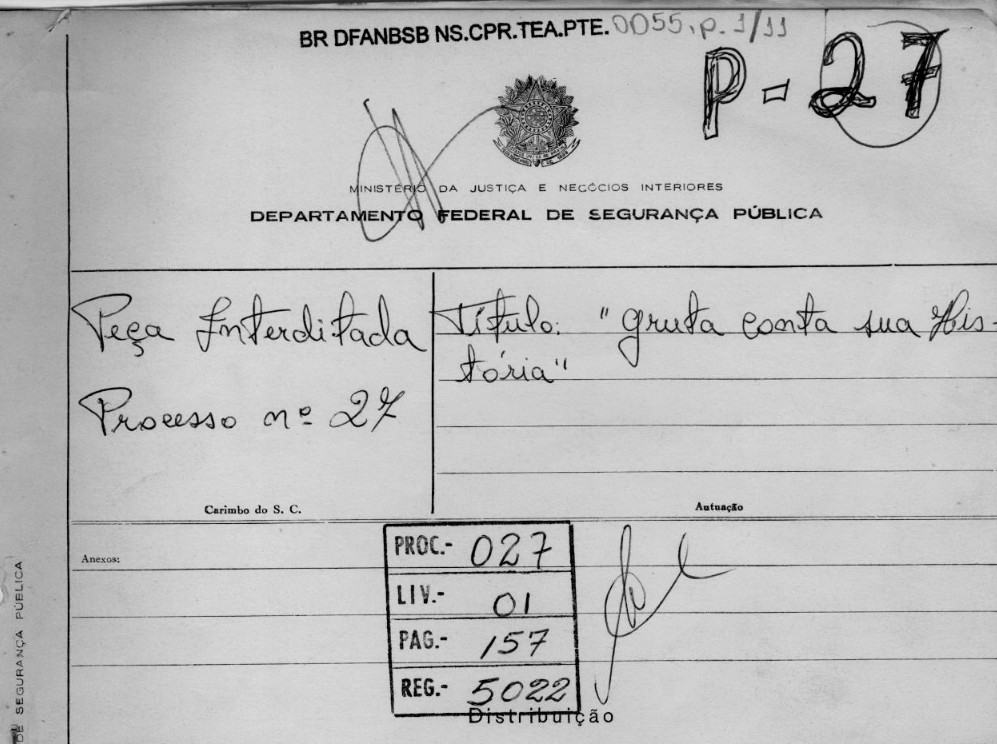 BR DFANBSB NS.CPR.TEA.PTE.0055, p. 1/11
P-27
MINISTÉRIO DA JUSTIÇA E NEGÓCIOS INTERIORES
DEPARTAMENTO FEDERAL DE SEGURANÇA PÚBLICA
Peça Interditada
Processo nº 27
Carimbo do S. C.
Título: "gruta conta sua His-
tória"
Autuação
Anexos:
PROC.- 027
LIV.- 01
PAG.- 157
REG.- 5022
Distribuição
DE SEGURANÇA PÚBLICA